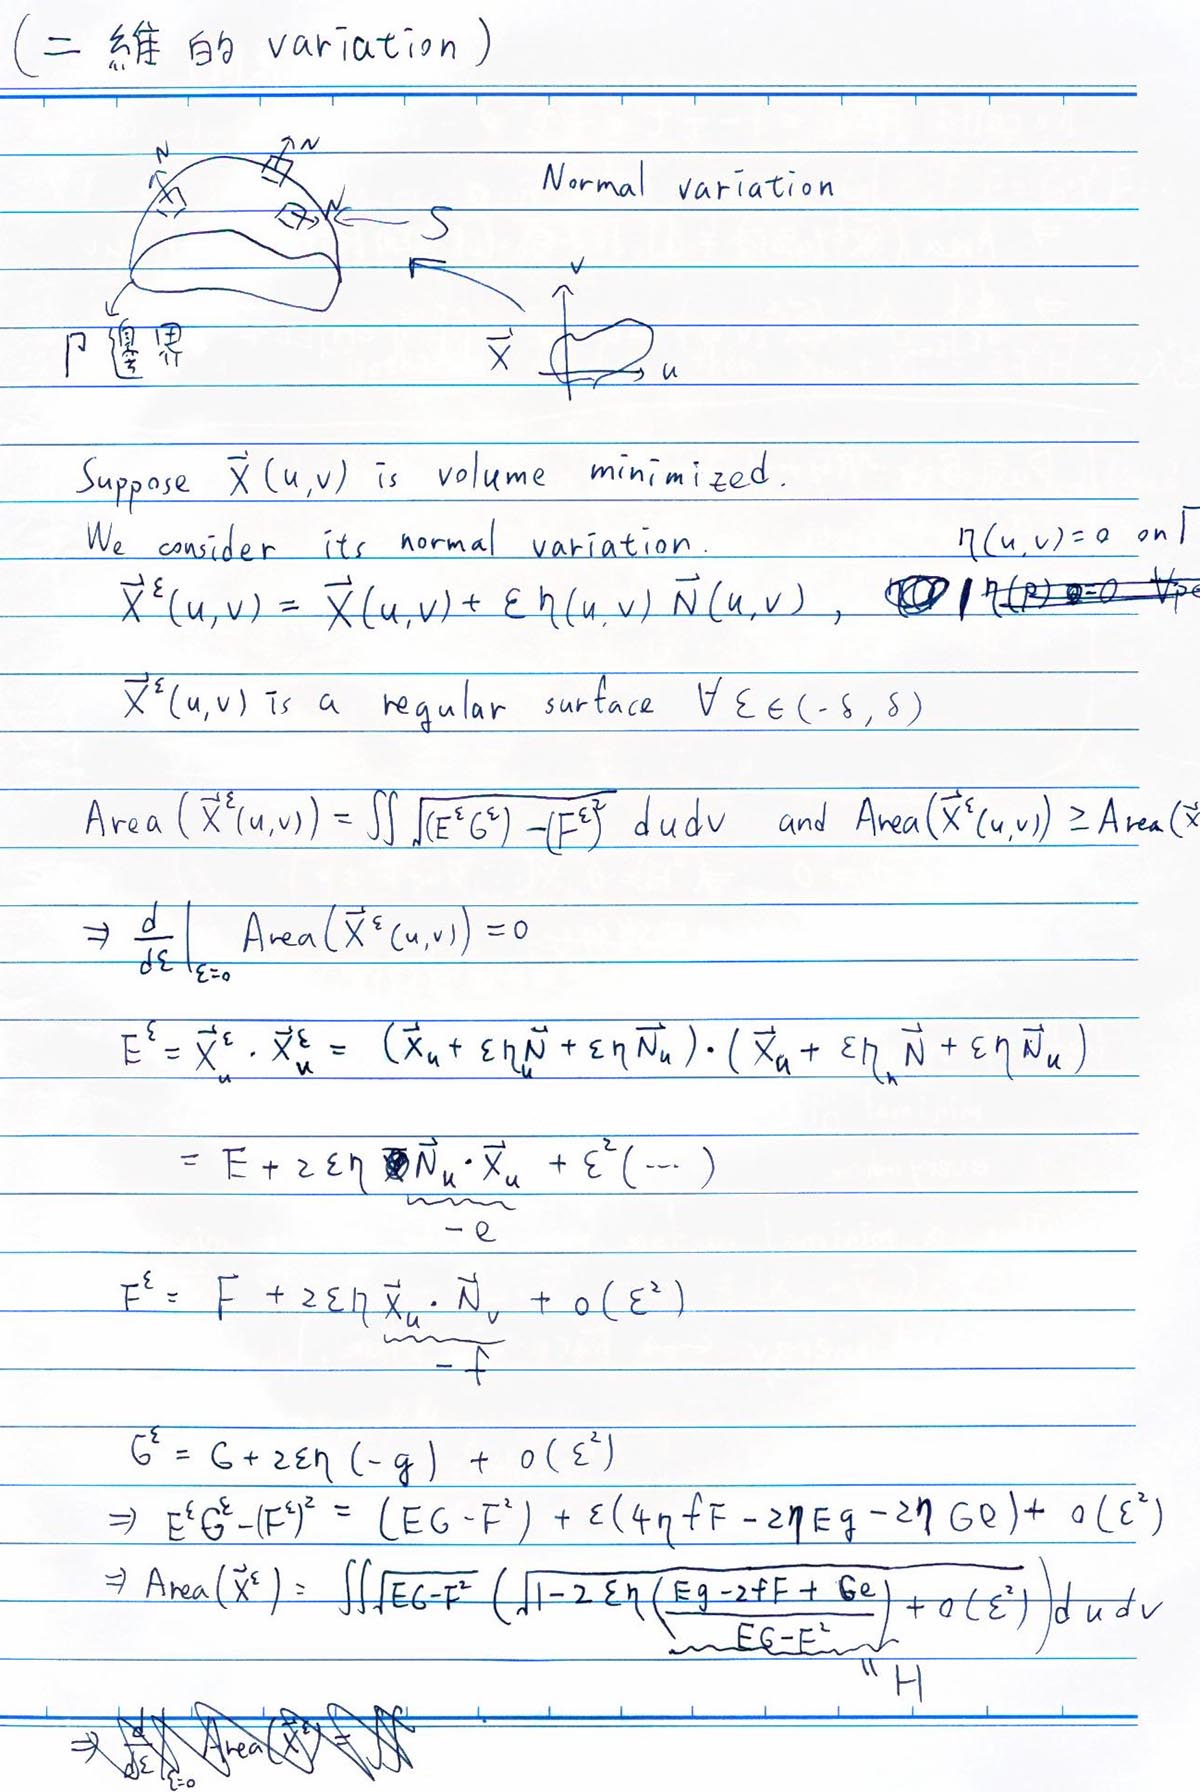 (二維的 variation)
N
N
N
Normal variation
S
v
Γ 邊界
X⃗
u
Suppose X⃗(u,v) is volume minimized.
We consider its normal variation.
η(u,v)=0 on Γ
X⃗^ε(u,v) = X⃗(u,v) + εη(u,v) N⃗(u,v),
X⃗^ε(u,v) is a regular surface ∀ ε∈(-δ,δ)
Area(X⃗^ε(u,v)) = ∬ √((E^εG^ε)-(F^ε)²) dudv and Area(X⃗^ε(u,v)) ≥ Area(X⃗
⇒ d/dε|_{ε=0} Area(X⃗^ε(u,v)) = 0
E^ε = X⃗^ε_u · X⃗^ε_u = (X⃗_u + εη_u N⃗ + εη N⃗_u)·(X⃗_u + εη_u N⃗ + εη N⃗_u)
= E + 2εη N⃗_u · X⃗_u + ε²(...)
-e
F^ε = F + 2εη X⃗_u · N⃗_v + o(ε²)
-f
G^ε = G + 2εη(-g) + o(ε²)
⇒ E^εG^ε-(F^ε)² = (EG-F²) + ε(4ηfF - 2ηEg - 2ηGe) + o(ε²)
⇒ Area(X⃗^ε) = ∬ √(EG-F²) (√(1-2εη((Eg-2fF+Ge)/(EG-F²)) + o(ε²))) dudv
" H
⇒ d/dε|_{ε=0} Area(X⃗^ε) = ∬